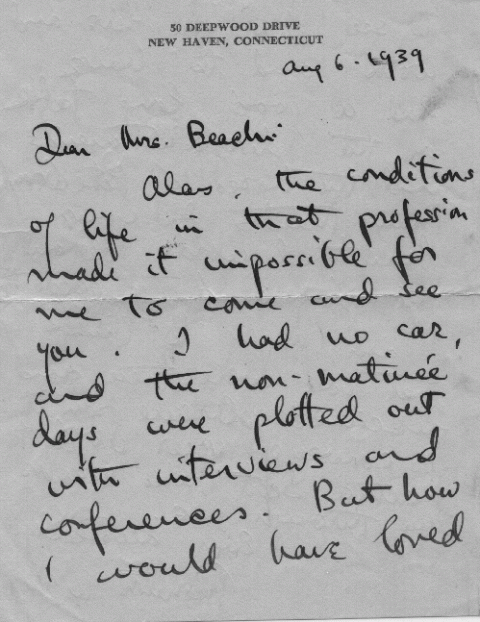 50 DEEPWOOD DRIVE
NEW HAVEN, CONNECTICUT
Aug 6 · 1939
Dear Mrs.
Alas, the conditions
of life in that profession
made it impossible for
me to come and see
you. I had no car,
and the non-matinée
days were plotted out
with interviews and
conferences. But how
I would have loved